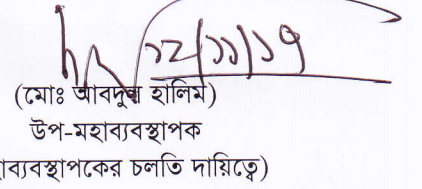 ১২/১১/১৭
(মোঃ আবদুল হালিম)
উপ-মহাব্যবস্থাপক
াব্যবস্থাপকের চলতি দায়িত্বে)